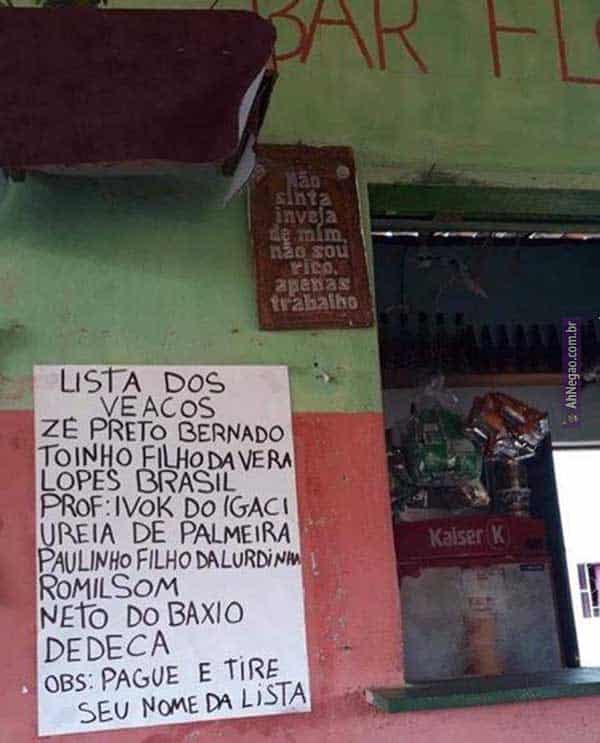 BAR FL
Não
sinta
inveja
de mim,
não sou
rico,
apenas
trabalho
AhNegao.com.br
LISTA DOS
VEACOS
ZÉ PRETO BERNADO
TOINHO FILHO DA VERA
LOPES BRASIL
PROF: IVOK DO IGACI
UREIA DE PALMEIRA
PAULINHO FILHO DA LURDINHA
ROMILSOM
NETO DO BAXIO
DEDECA
OBS: PAGUE E TIRE
SEU NOME DA LISTA
Kaiser K